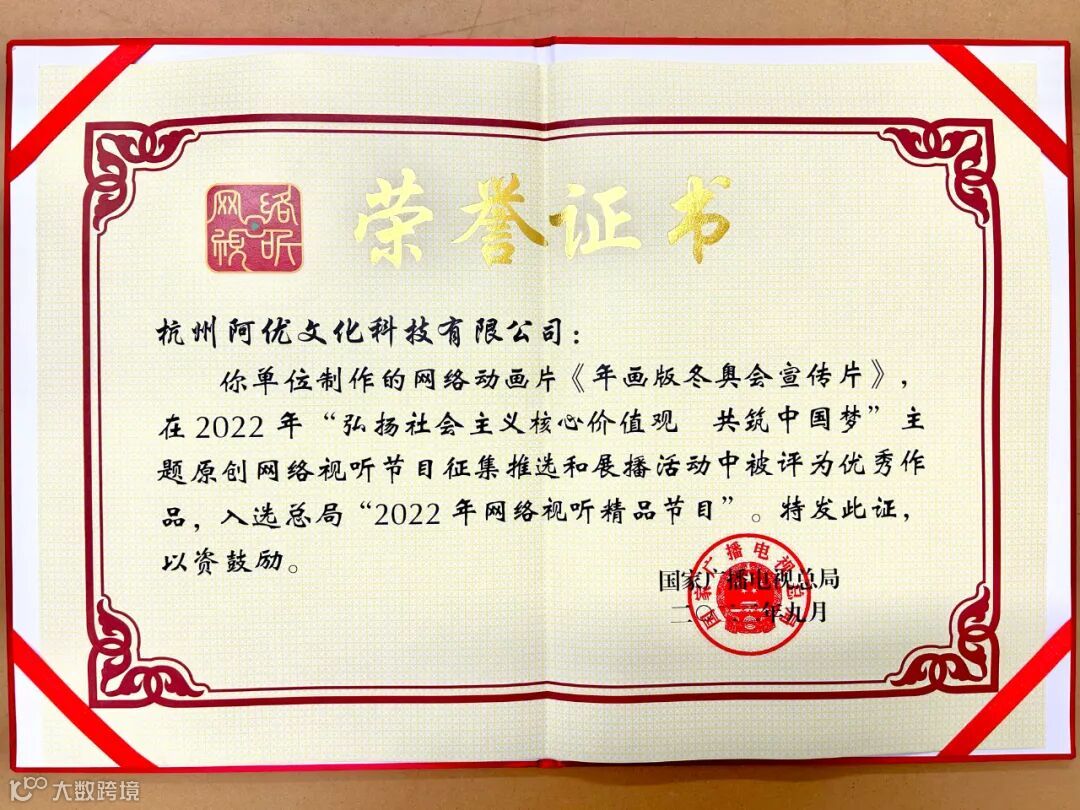 网络
视听
荣誉证书
杭州阿优文化科技有限公司：
你单位制作的网络动画片《年画版冬奥会宣传片》，
在2022年“弘扬社会主义核心价值观 共筑中国梦”主
题原创网络视听节目征集推选和展播活动中被评为优秀作
品，入选总局“2022年网络视听精品节目”。特发此证，
以资鼓励。
国家广播电视总局
国家广播电视总局
二〇二二年九月
大数跨境